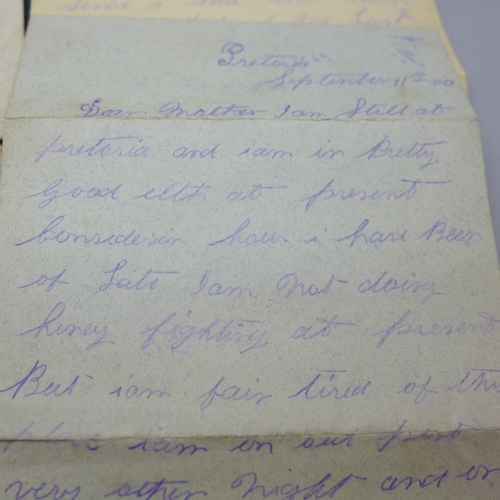 Since i had
Last
Pretoria
September 11th 00
Dear Mother I am Still at
pretoria and i am in Pretty
Good elth at present
Consderin how i have Been
of Late I am Not doing
heney fighting at present
But i am fair tired of this
place i am on out post
very other Night and